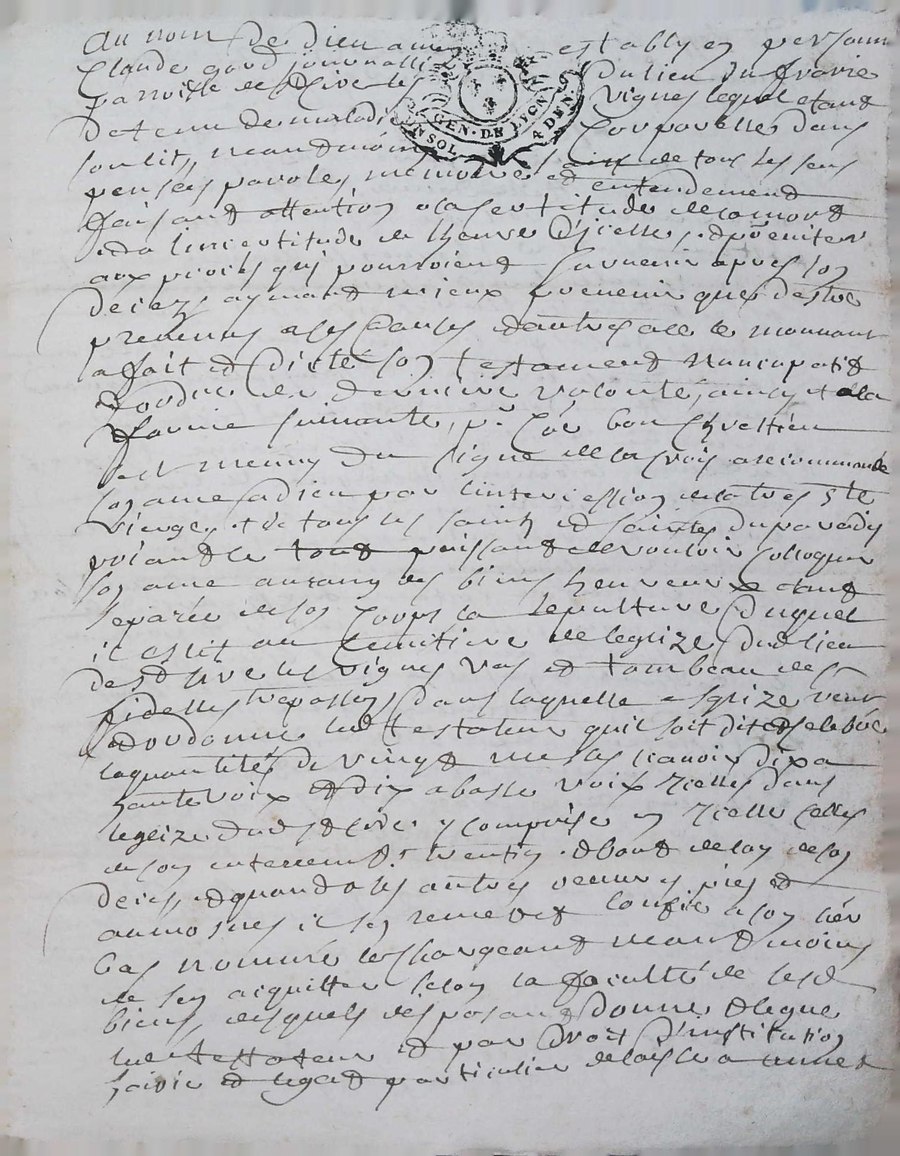 au nom de dieu amen estably en personne
Claude gord journallier du lieu du
parroisse de St Cire les vignes lequel etant
detenu de maladie corporelle dans
son lit, neandmoins de tous ses sens
pensées paroles memoire et entendement
faisand attention a la sertitude de la mord
et a lincertitude de lheure d'icelle, et
aux procès qui pourroiend survenir apres son
deceds aymand mieux prevenir que destre
prevenus a ses causes
a fait et dicté son testamend nuncupatif
et ordre de derniere volonté, ainsy et a la
forme suivante, p.r co͞e bon Chrettien
sest muny du signe de la croix a recommandé
son ame a dieu par lintercession de la tres Ste
Vierge, et de tous les saints et saintes du paradis
priand le toud puissand de vouloir colloquer
son ame au rang des bien heureux etand
separée de son corps la sepulture duquel
il eslit au cemittiere de legrize dud lieu
de St Cire les vignes vas et tombeau de ses
fidelles trepassés, dans laquelle esgrize veut
et ordonne led testateur quil soit dit et celebré
la quantité de vingt messes scavoir dix a
haute voix et dix a basse voix icelles dans
legrize dud St Cire y comprise en icelle celles
de son enterrement, et boud de lan de son
deces, et quand a ses autres œuvres pies et
aumosnes il sen remet et confie a son her
bas nommé le chargeand neandmoins
de sen acquitter selon la faculté de sesd
biens, desquels disposand donne et legue
led testateur et par droit d'institution
et legat particulier